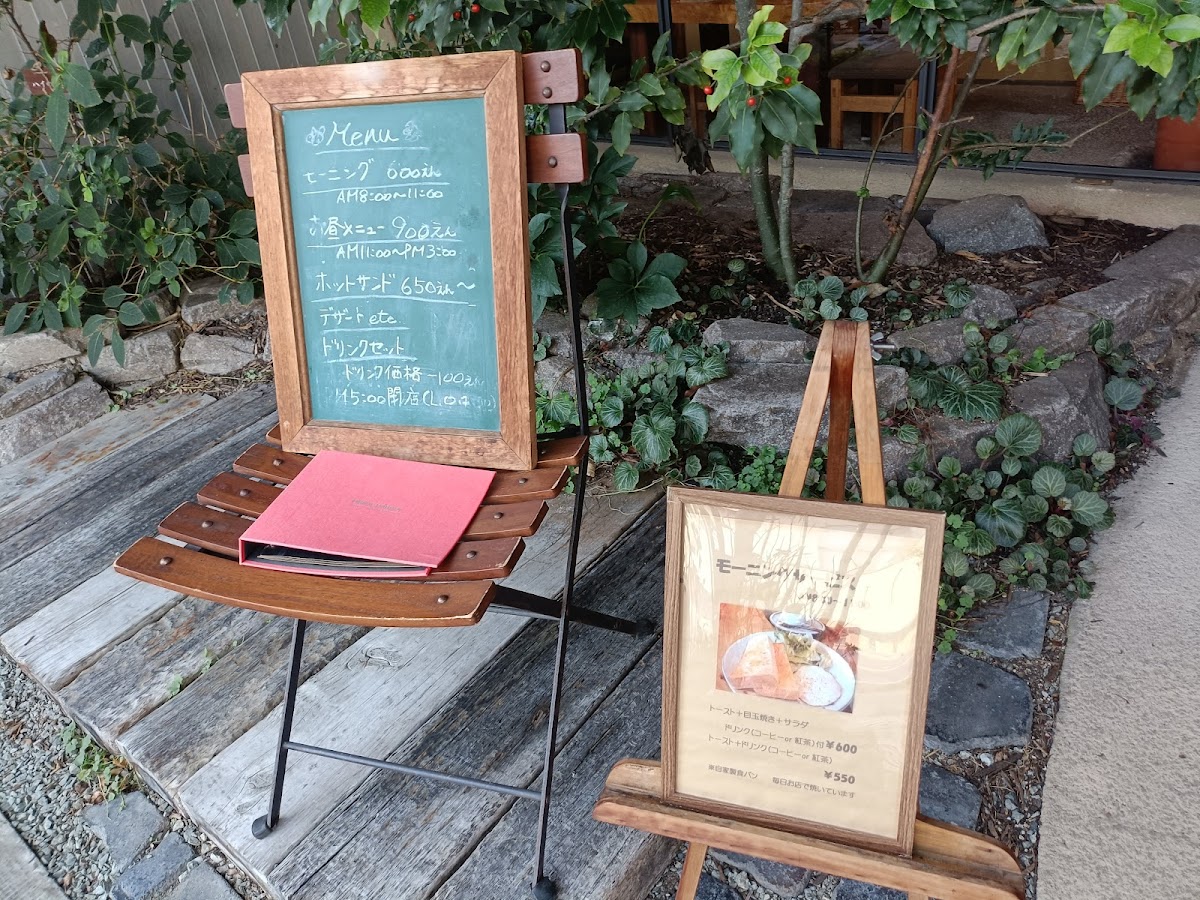 Menu
モーニング 600えん
AM8:00〜11:00
お昼メニュー 900えん
AM11:00〜PM3:00
ホットサンド 650えん〜
デザート etc
ドリンクセット
ドリンク価格ー100えん
15:00 閉店(L.O
モーニング
トースト+目玉焼き+サラダ
ドリンク(コーヒーor 紅茶)付¥600
トースト+ドリンク(コーヒーor 紅茶)
¥550
※自家製食パン 毎日お店で焼いています